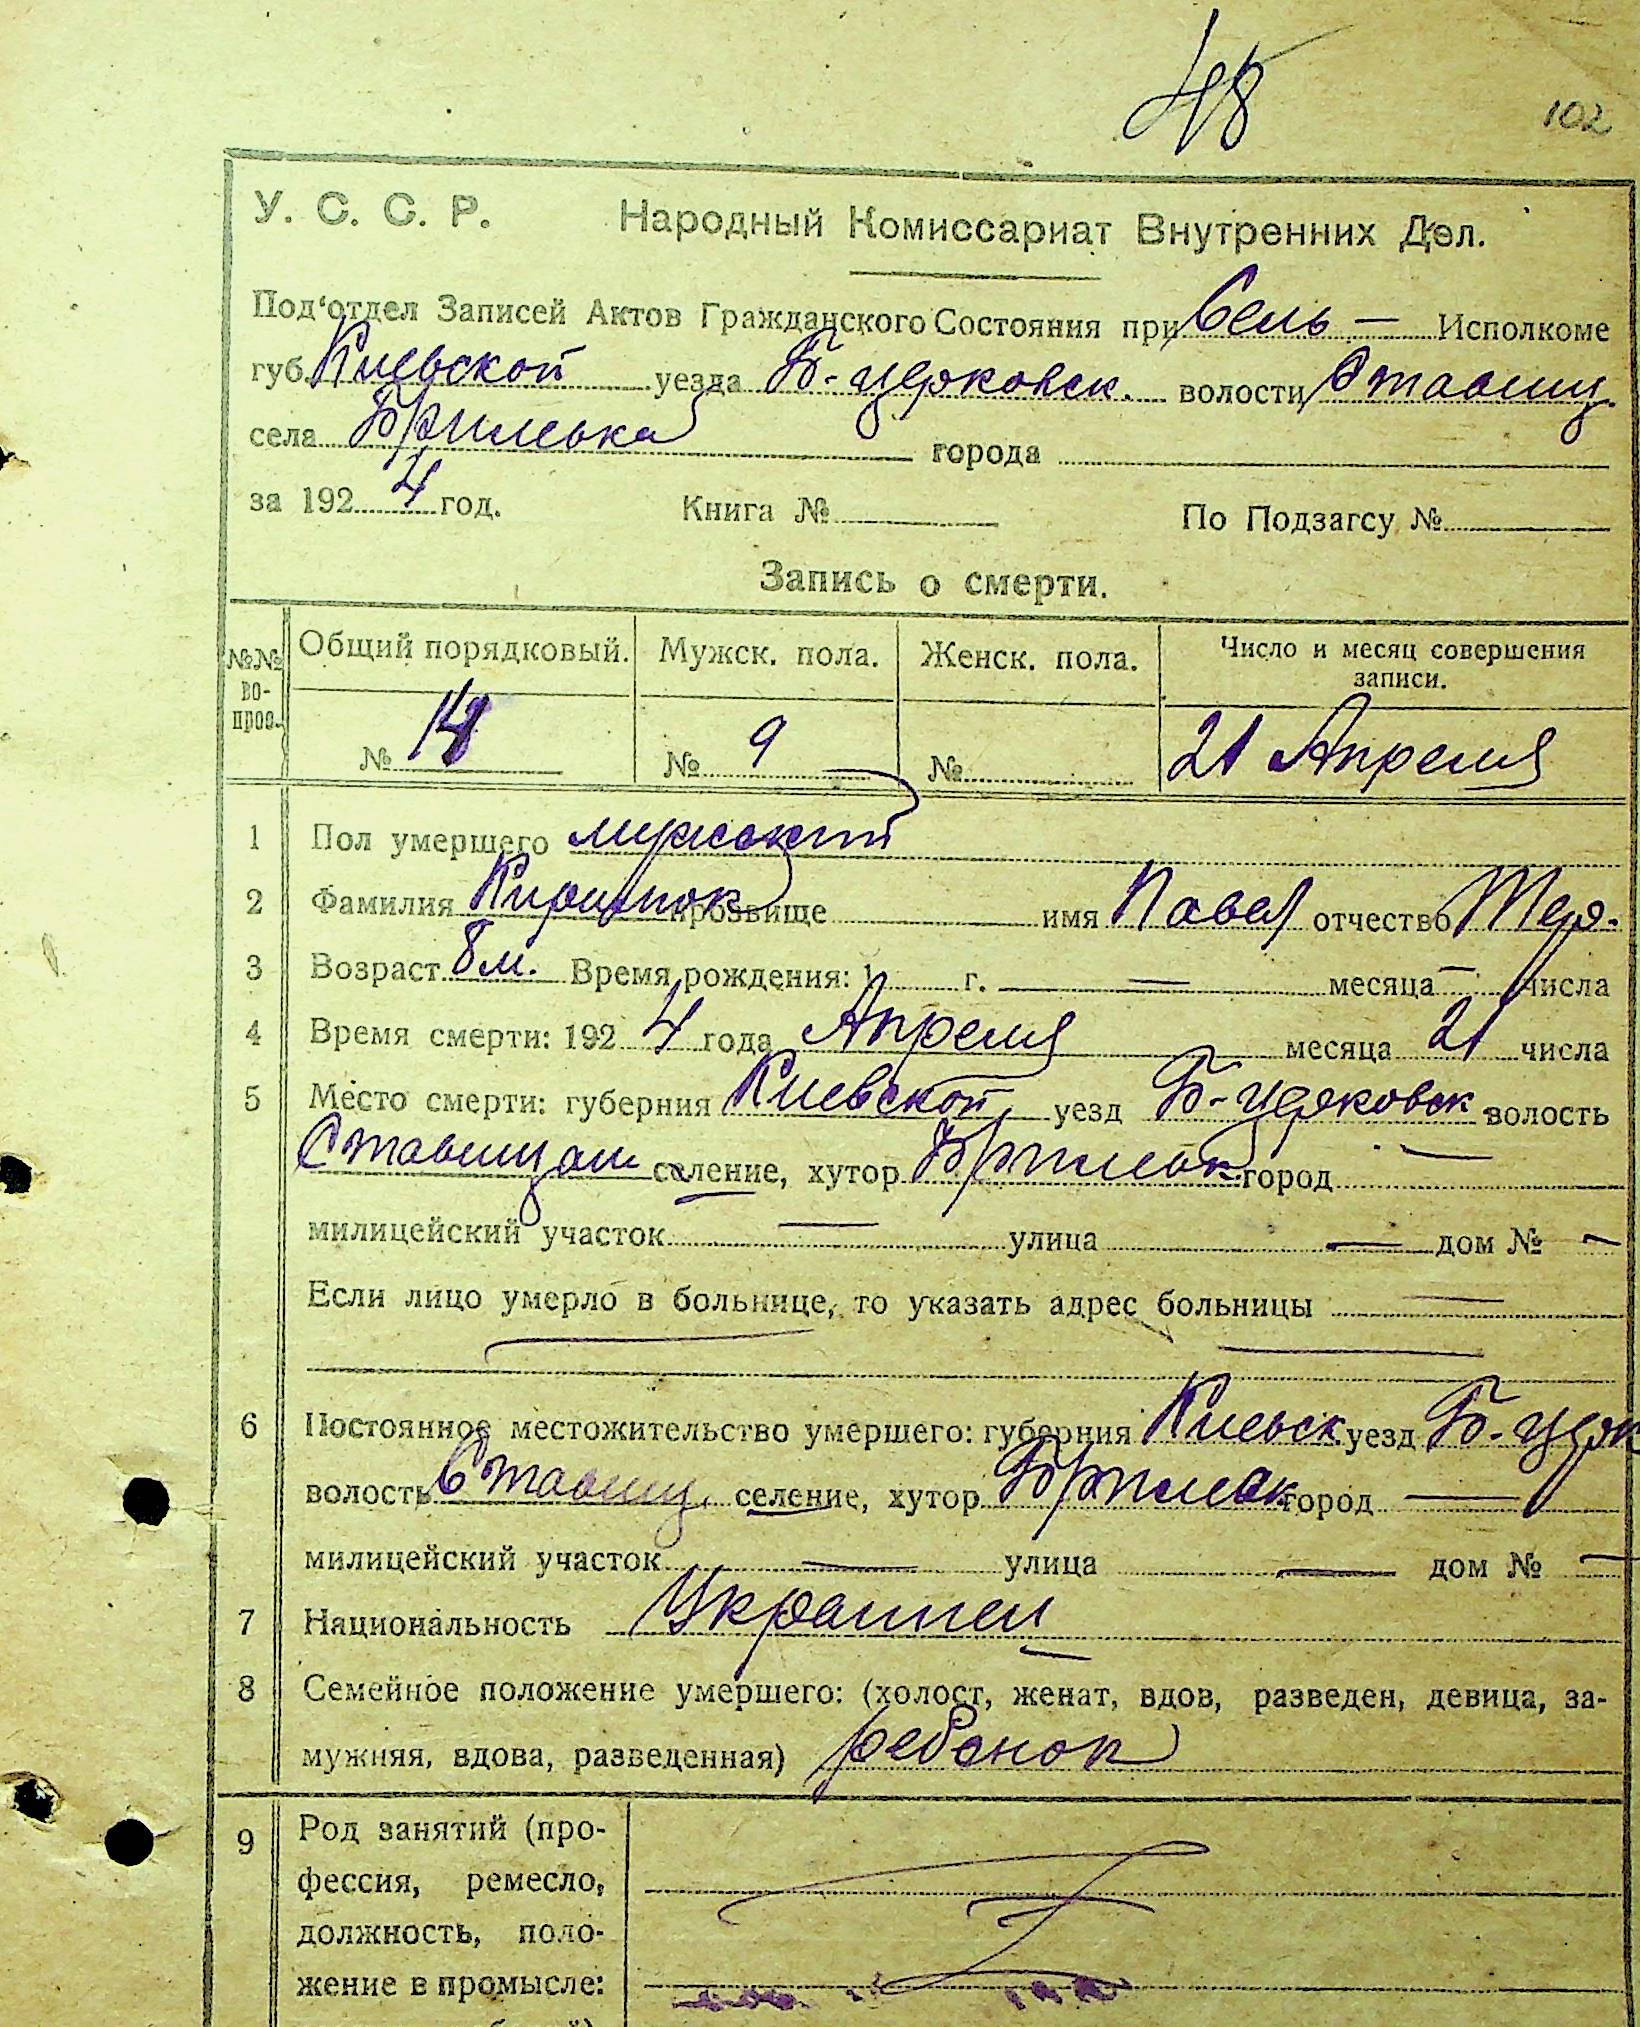 48
102
У. С. С. Р. Народный Комиссариат Внутренних Дел.
Под'отдел Записей Актов Гражданского Состояния при Сель — Исполкоме
губ. Киевской уезда Б-церковск. волости Ставищ.
села города
за 1924 год. Книга № По Подзагсу №
Запись о смерти.
№№ во- прос. Общий порядковый. Мужск. пола. Женск. пола. Число и месяц совершения записи.
№ № 9 № 21 Апреля
1 Пол умершего мужский
2 Фамилия прозвище имя Павел отчество
3 Возраст 8 м. Время рождения: 1 г. — месяца — числа
4 Время смерти: 1924 года Апреля месяца 21 числа
5 Место смерти: губерния Киевской уезд Б-церковск волость
селение, хутор город —
милицейский участок — улица — дом № —
Если лицо умерло в больнице, то указать адрес больницы —
6 Постоянное местожительство умершего: губерния Киевск. уезд Б-церк
волость Ставищ. селение, хутор город —
милицейский участок — улица — дом № —
7 Национальность Украинец
8 Семейное положение умершего: (холост, женат, вдов, разведен, девица, за-
мужняя, вдова, разведенная) ребенок
9 Род занятий (про-
фессия, ремесло,
должность, поло-
жение в промысле: